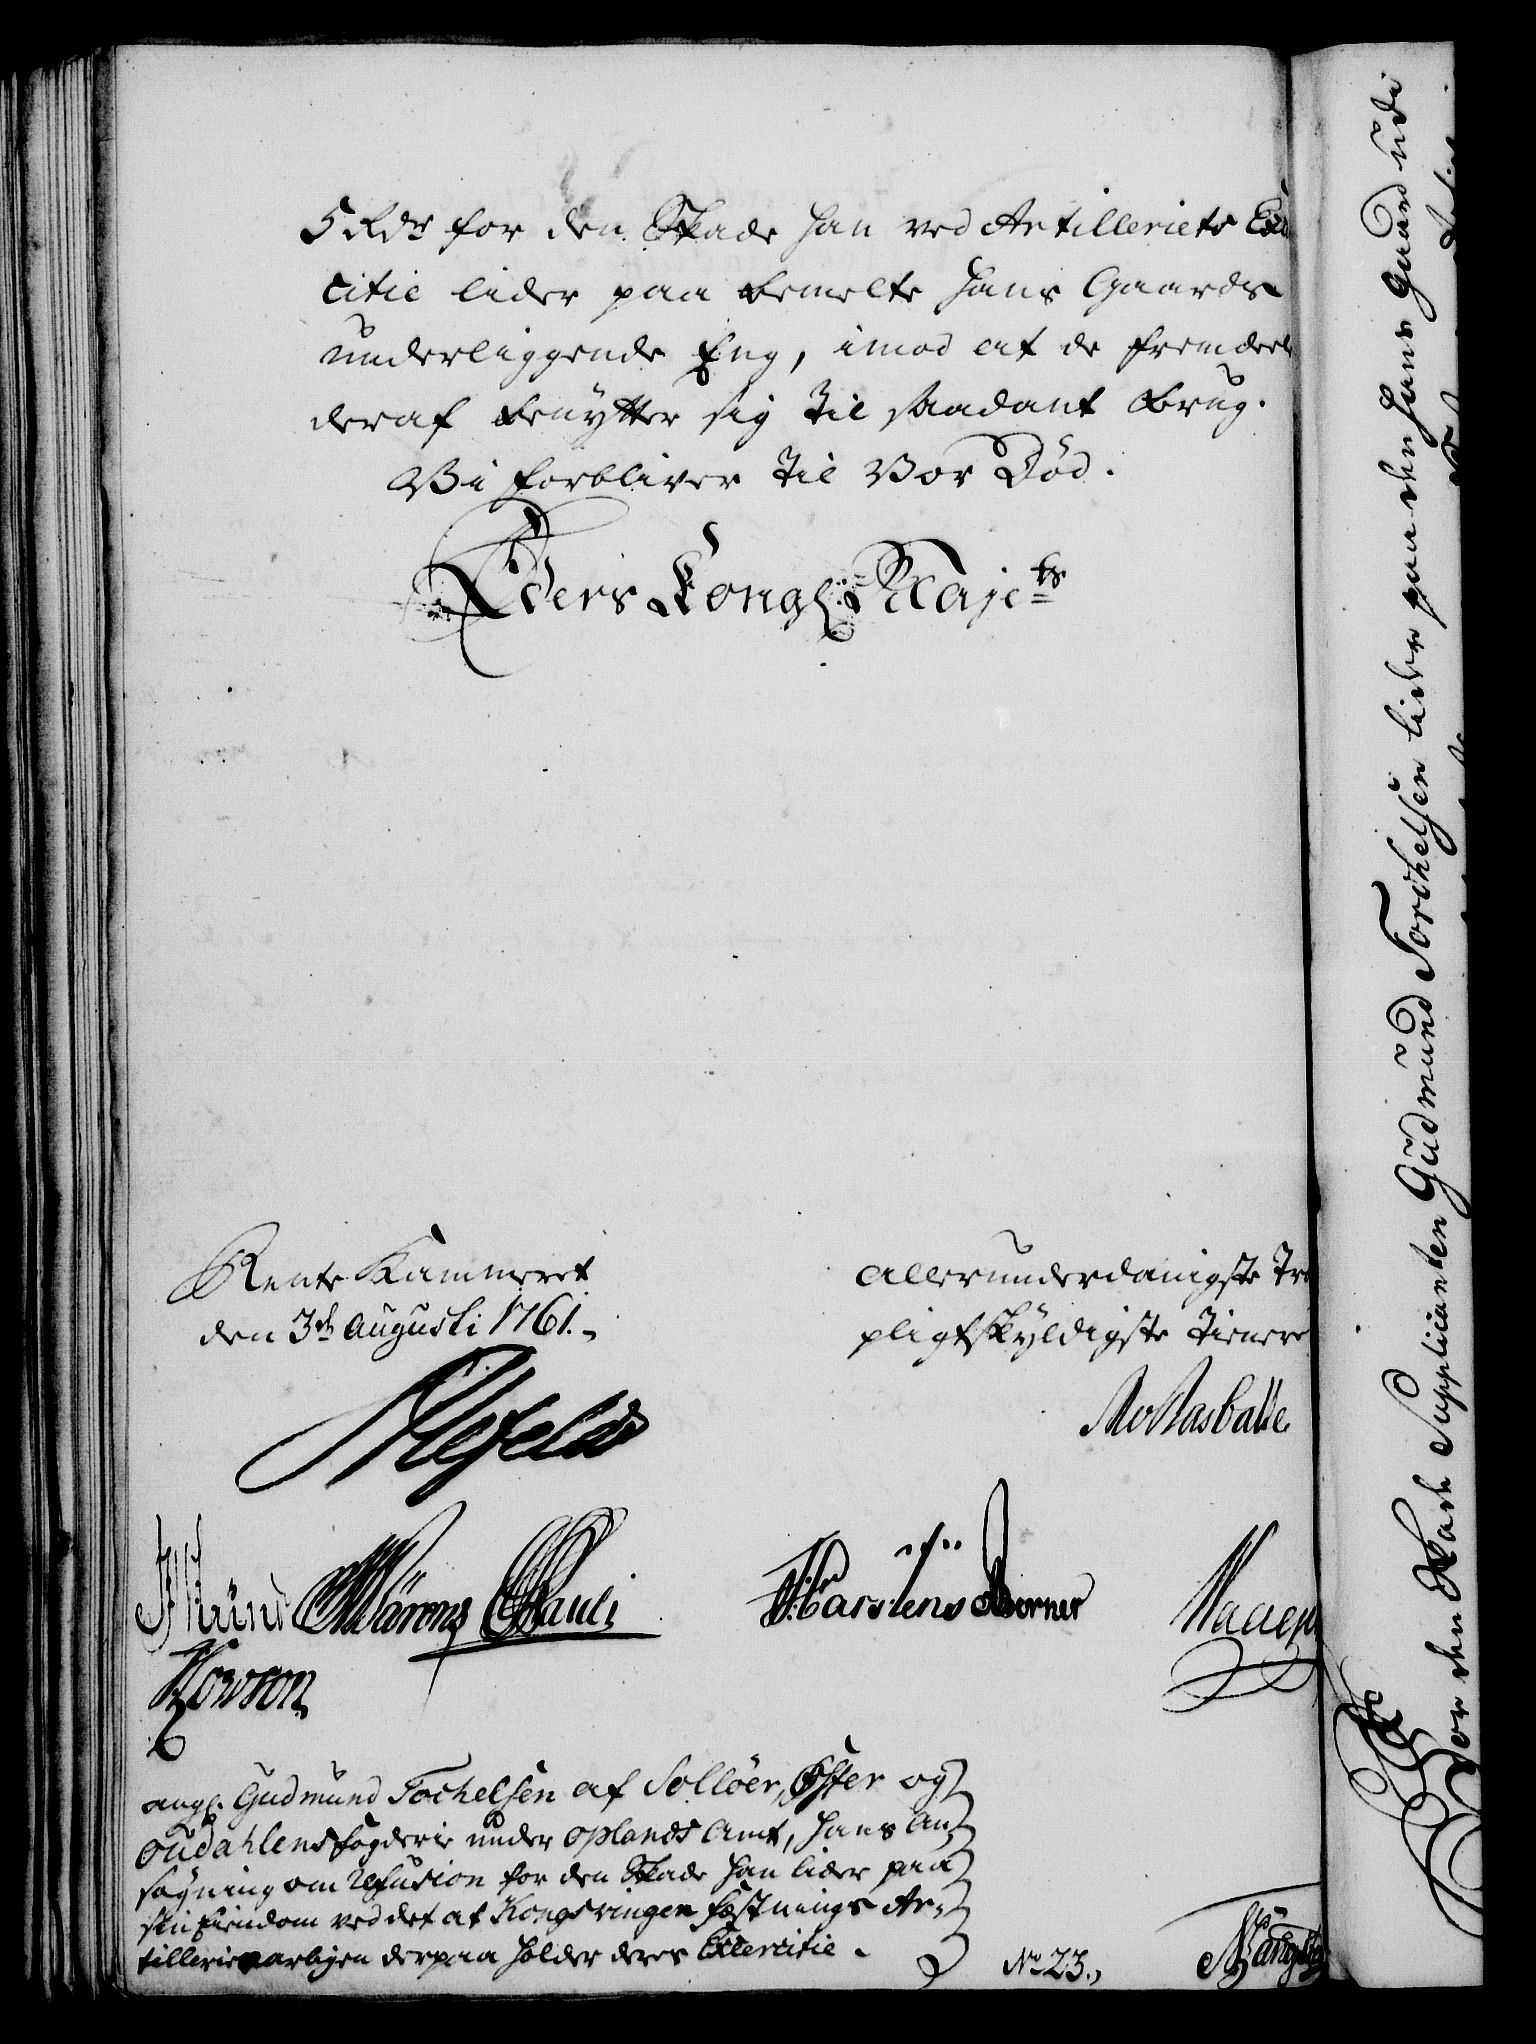 5 Rdr for den Skade han ved Artilleriets Ex
citie lider paa bemelte hans Gaards
underliggende Eng, imod at de fremdeel
deraf benytter sig til saadant brug.
Vi forbliver til Vor Død.
Eders Kongl: Majets
Rente Kammeret
den 3de Augusti 1761.
Allerunderdanigste Tro
pligtskyldigste Tienere
Alefeld
Pauli
Karstens Berner
Kowson
ang: Gudmund Tochelsen af Solløer, Øster og
Oudahlens fogderie under Oplands Amt, hans An,
søgning om refusion for den Skade han lider paa
sin Eiendom ved det at Kongsvingens Fæstnings Ar,
tillerie aarligen derpaa holder deres Exercitie.
No 23.
For den Skade Supplicanten Gudmund Torchelsen lider paa den hans Gaard udi